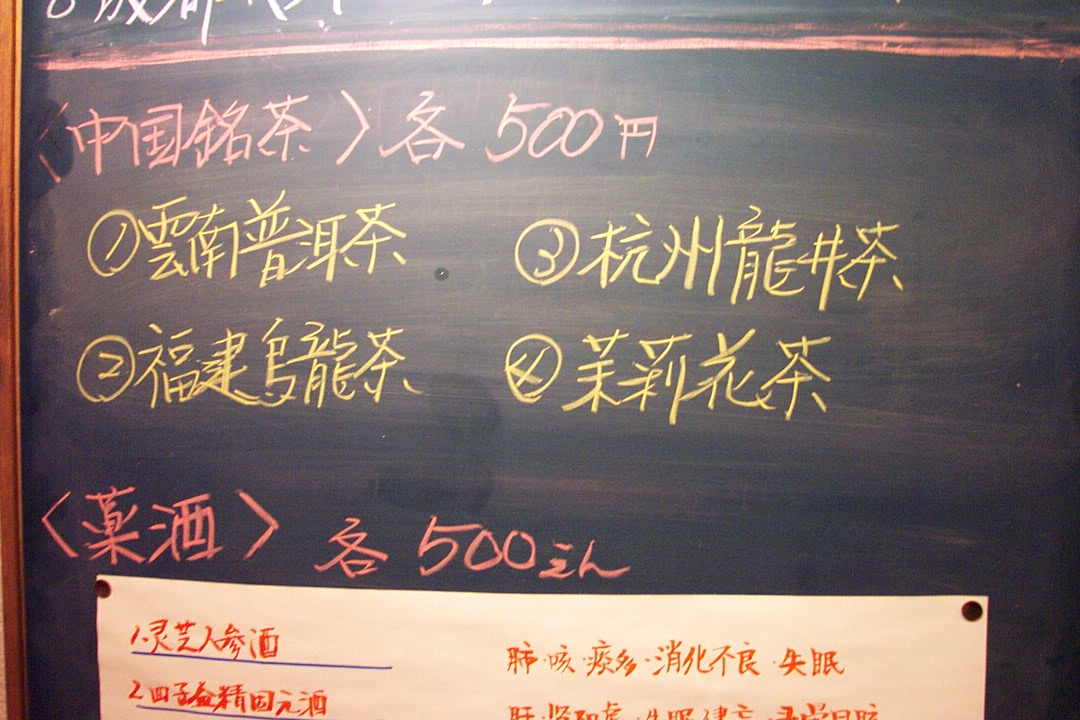 〈中国銘茶〉各500円
①雲南普洱茶 ③杭州龍井茶
②福建烏龍茶 ④茉莉花茶
〈薬酒〉各500えん
1.灵芝人参酒 肺·咳·痰多·消化不良·失眠
2.四子益精固元酒